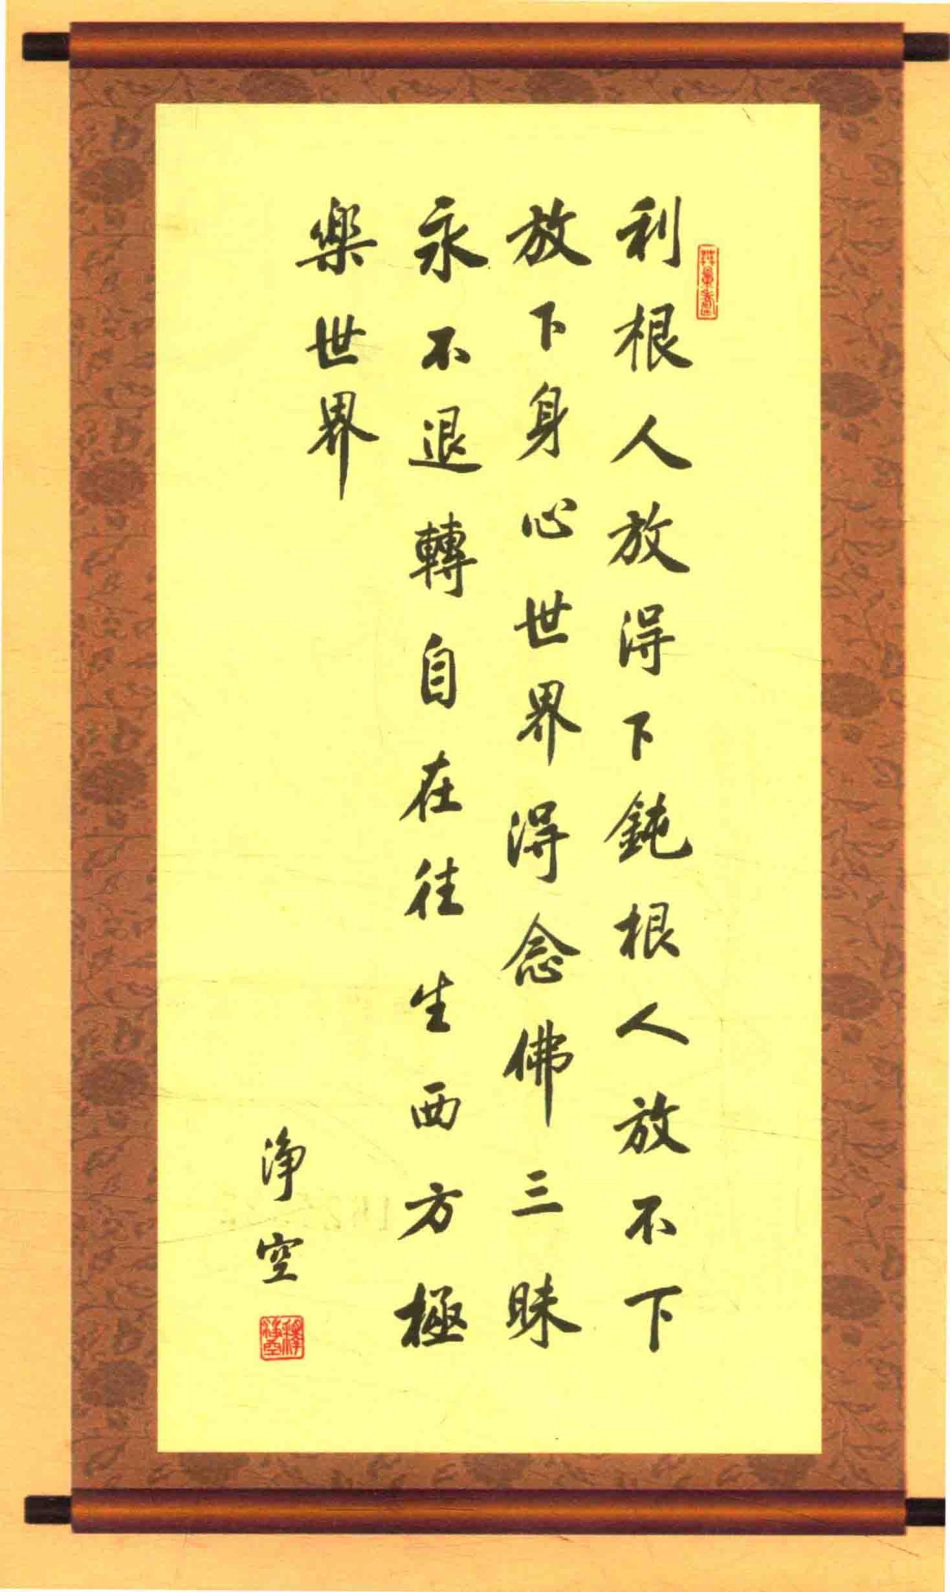 無量壽
利根人放得下鈍根人放不下
放下身心世界得念佛三昧
永不退轉自在往生西方極
樂世界
淨空
釋淨空